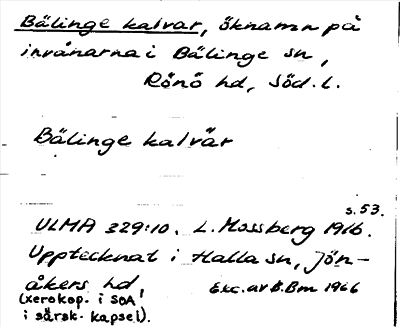 Bälinge kalvar, öknamn på
invånarna i Bälinge sn,
Rönö hd, Söd.l.
Bälinge kalvär
s. 53.
ULMA 229:10. L. Mossberg 1916.
Upptecknat i Halla sn, Jön-
åkers hd,
(xerokop. i SOA
i särsk. kapsel).
Exc. av B.Bm 1966